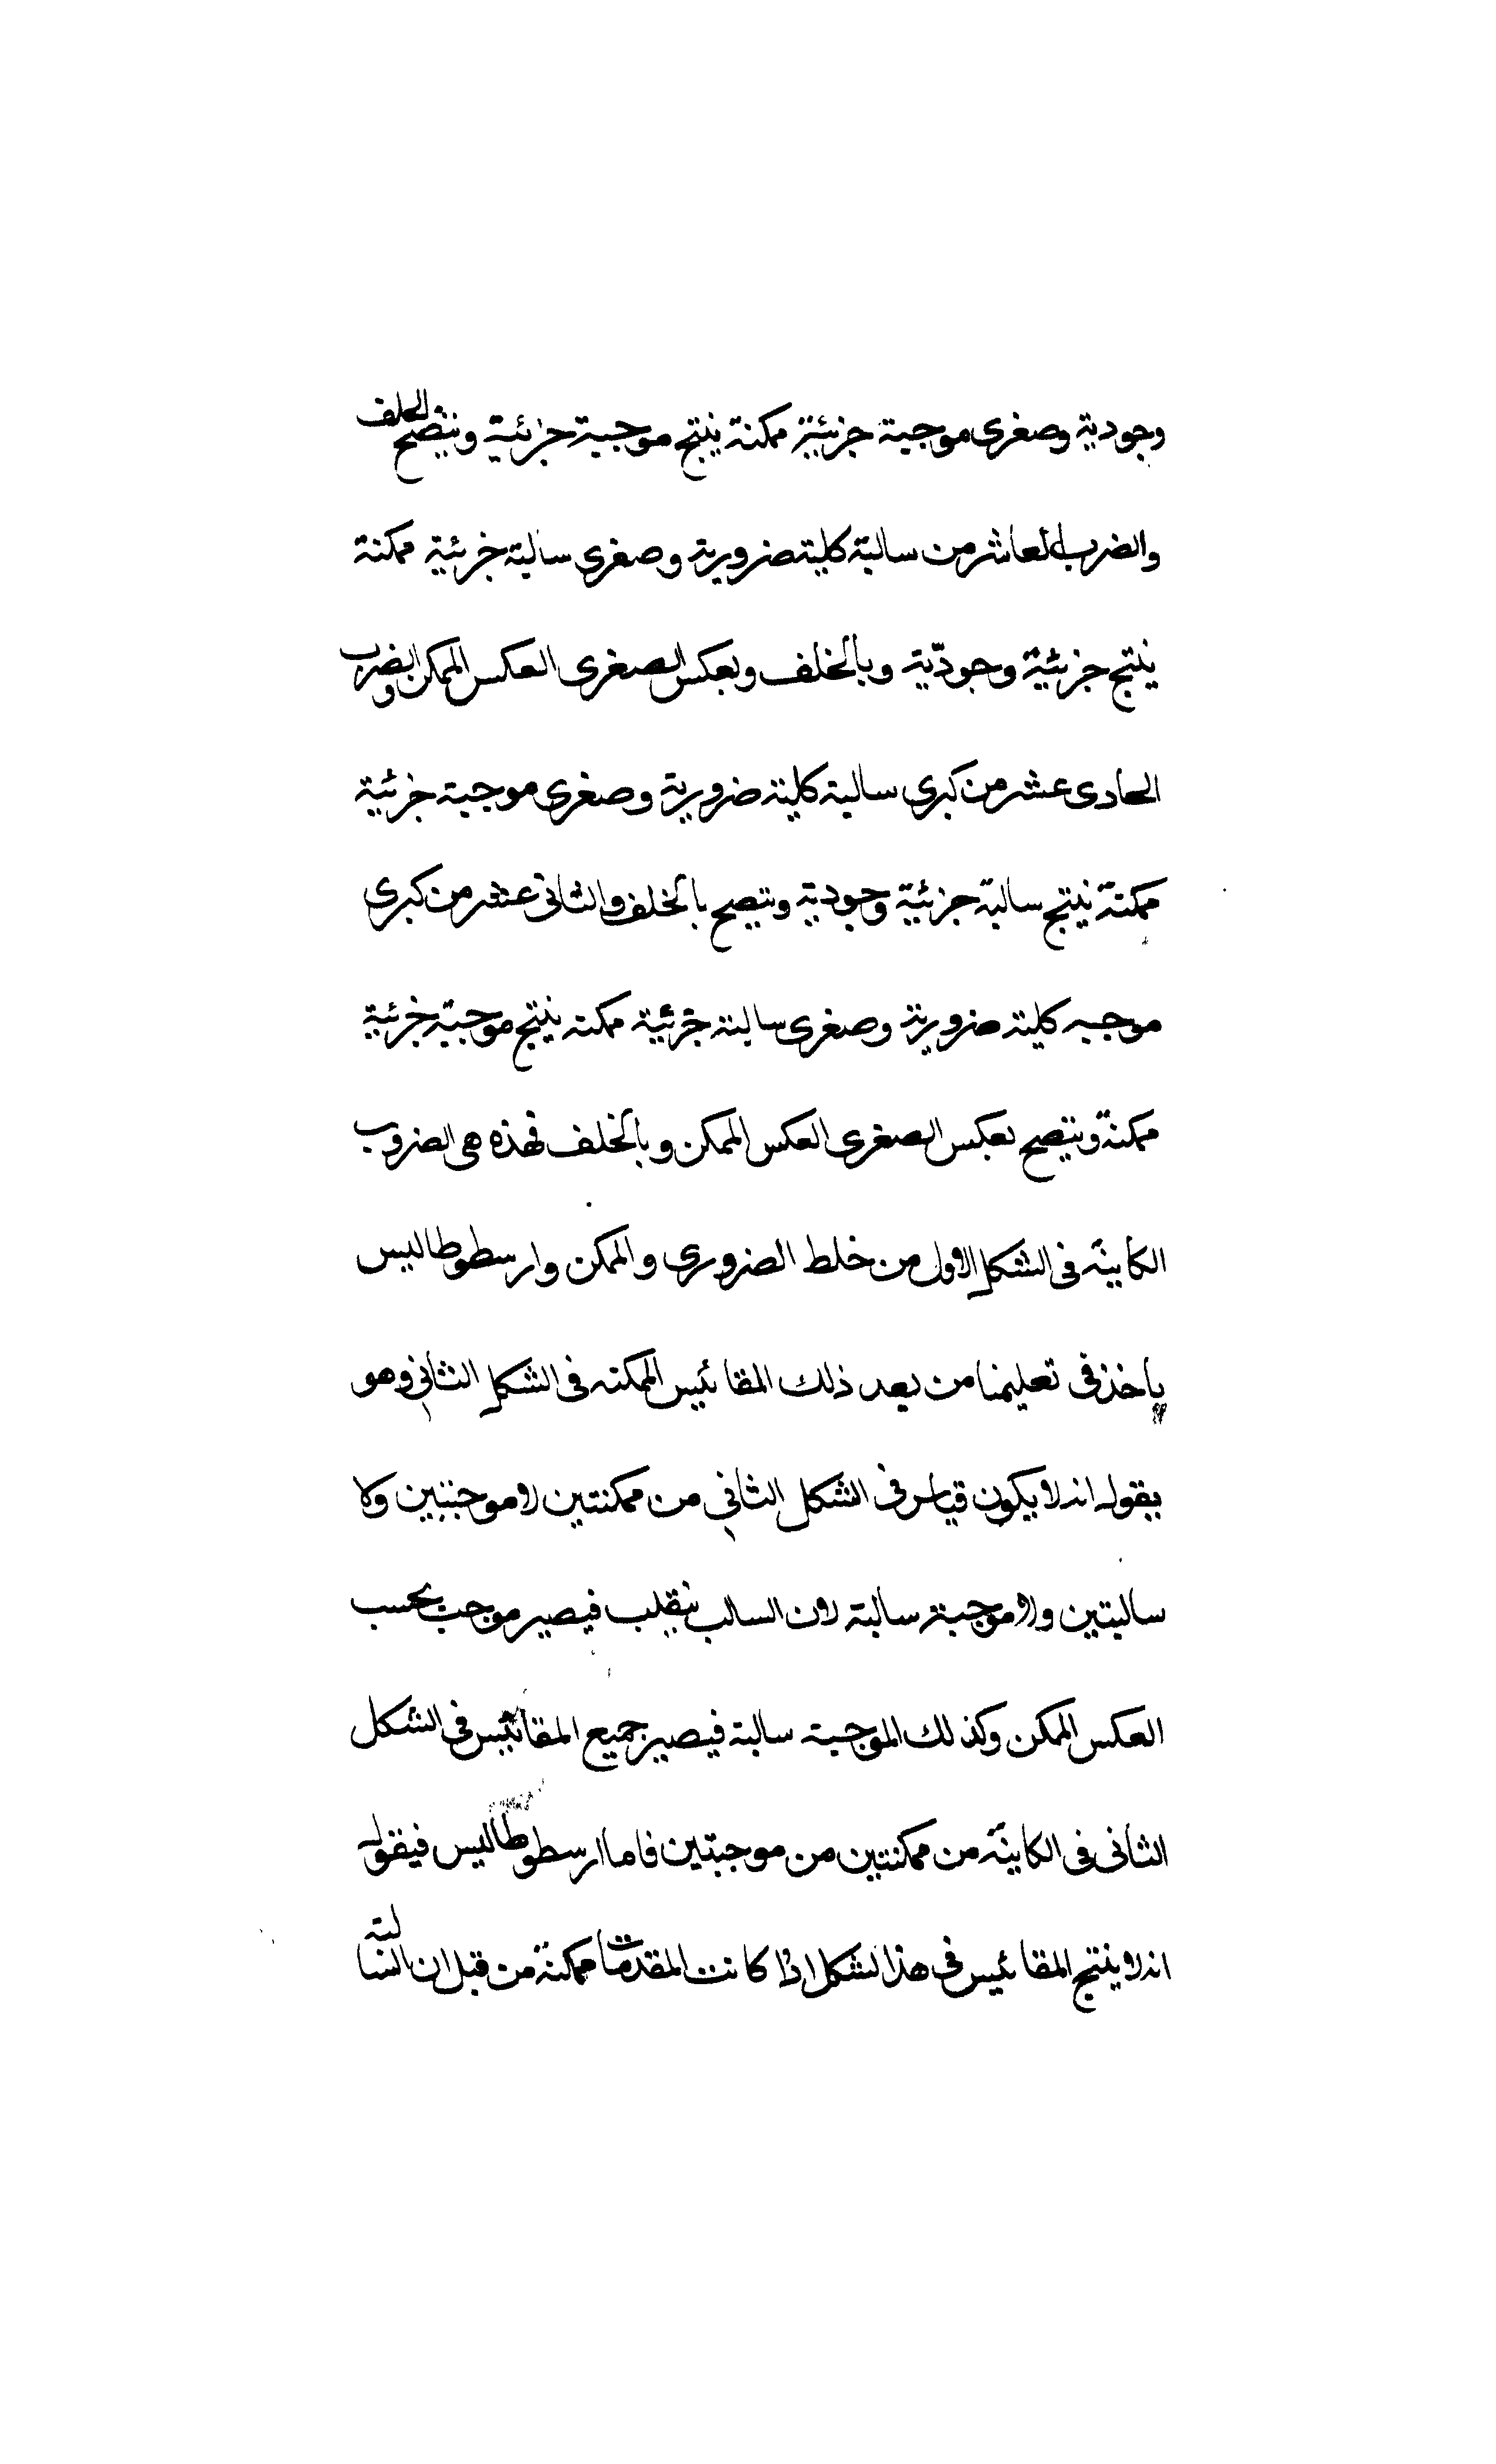 وجودية وصغرى موجبة جزئية ممكنة ينتج موجبة جزئية ويتضح بالخلف
والضرب العاشر من سالبة كلية ضرورية وصغرى سالبة جزئية ممكنة
ينتج جزئية وجوديّة وبالخلف وبعكس الصغرى العكس الممكن والضرب
الحادى عشر من كبرى سالبة كلية ضرورية وصغرى موجبة جزئية
ممكنة ينتج سالبة جزئية وجودية ويتضح بالخلف والثانى عشر من كبرى
موجبه كلية ضرورية وصغرى سالبة جزئية ممكنه ينتج موجبة جزئية
ممكنة ويتضح بعكس الصغرى العكس الممكن وبالخلف فهذه هى الضروب
الكاينة فى الشكل الاول من خلط الضرورى والممكن وارسطوطاليس
ياخذ فى تعليمنا من بعد ذلك المقائيس الممكنه فى الشكل الثانى وهو
يقول انه لا يكون قياس فى الشكل الثانى من ممكنتين لا موجبتين ولا
سالبتين ولا موجبة سالبة لان السالب ينقلب فيصير موجب بحسب
العكس الممكن وكذلك الموجبة سالبة فيصير جميع المقائيس فى الشكل
الثانى فى الكاينة من ممكنتين من موجبتين فاما ارسطوطاليس فيقول
انه لا ينتج المقائيس فى هذا الشكل اذا كانت المقدمات ممكنة من قبل ان السالبة